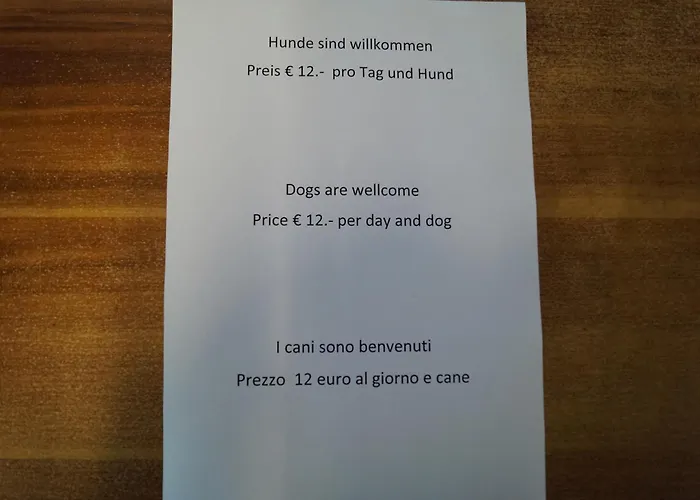 Hunde sind willkommen
Preis € 12.- pro Tag und Hund
Dogs are wellcome
Price € 12.- per day and dog
I cani sono benvenuti
Prezzo 12 euro al giorno e cane